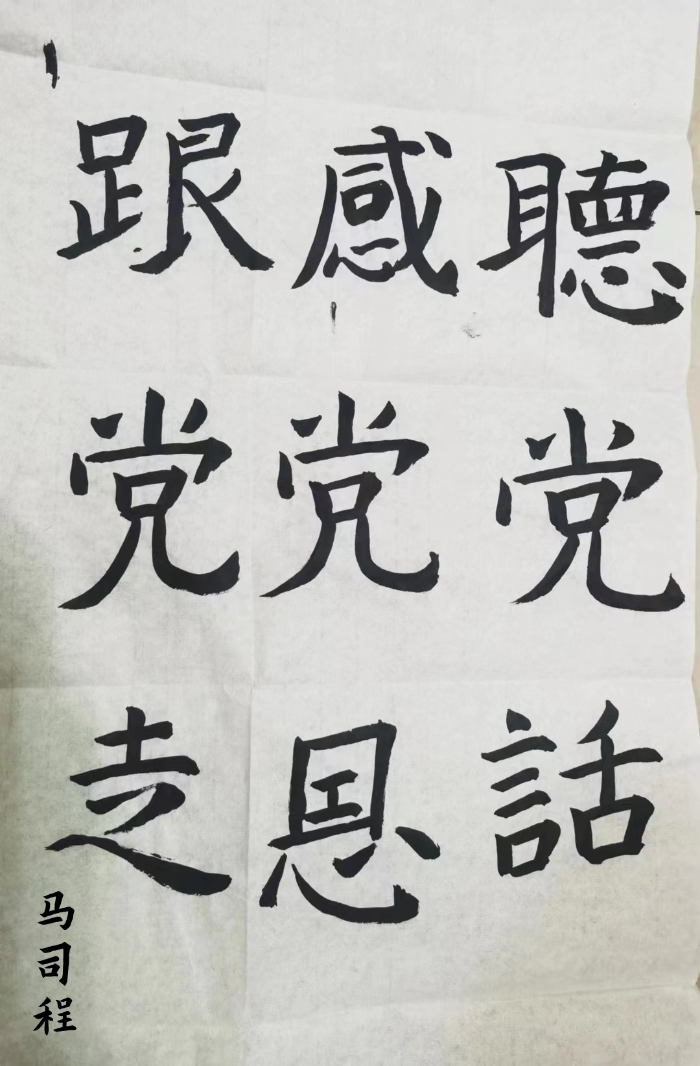 聽党話
感党恩
跟党走
马司程